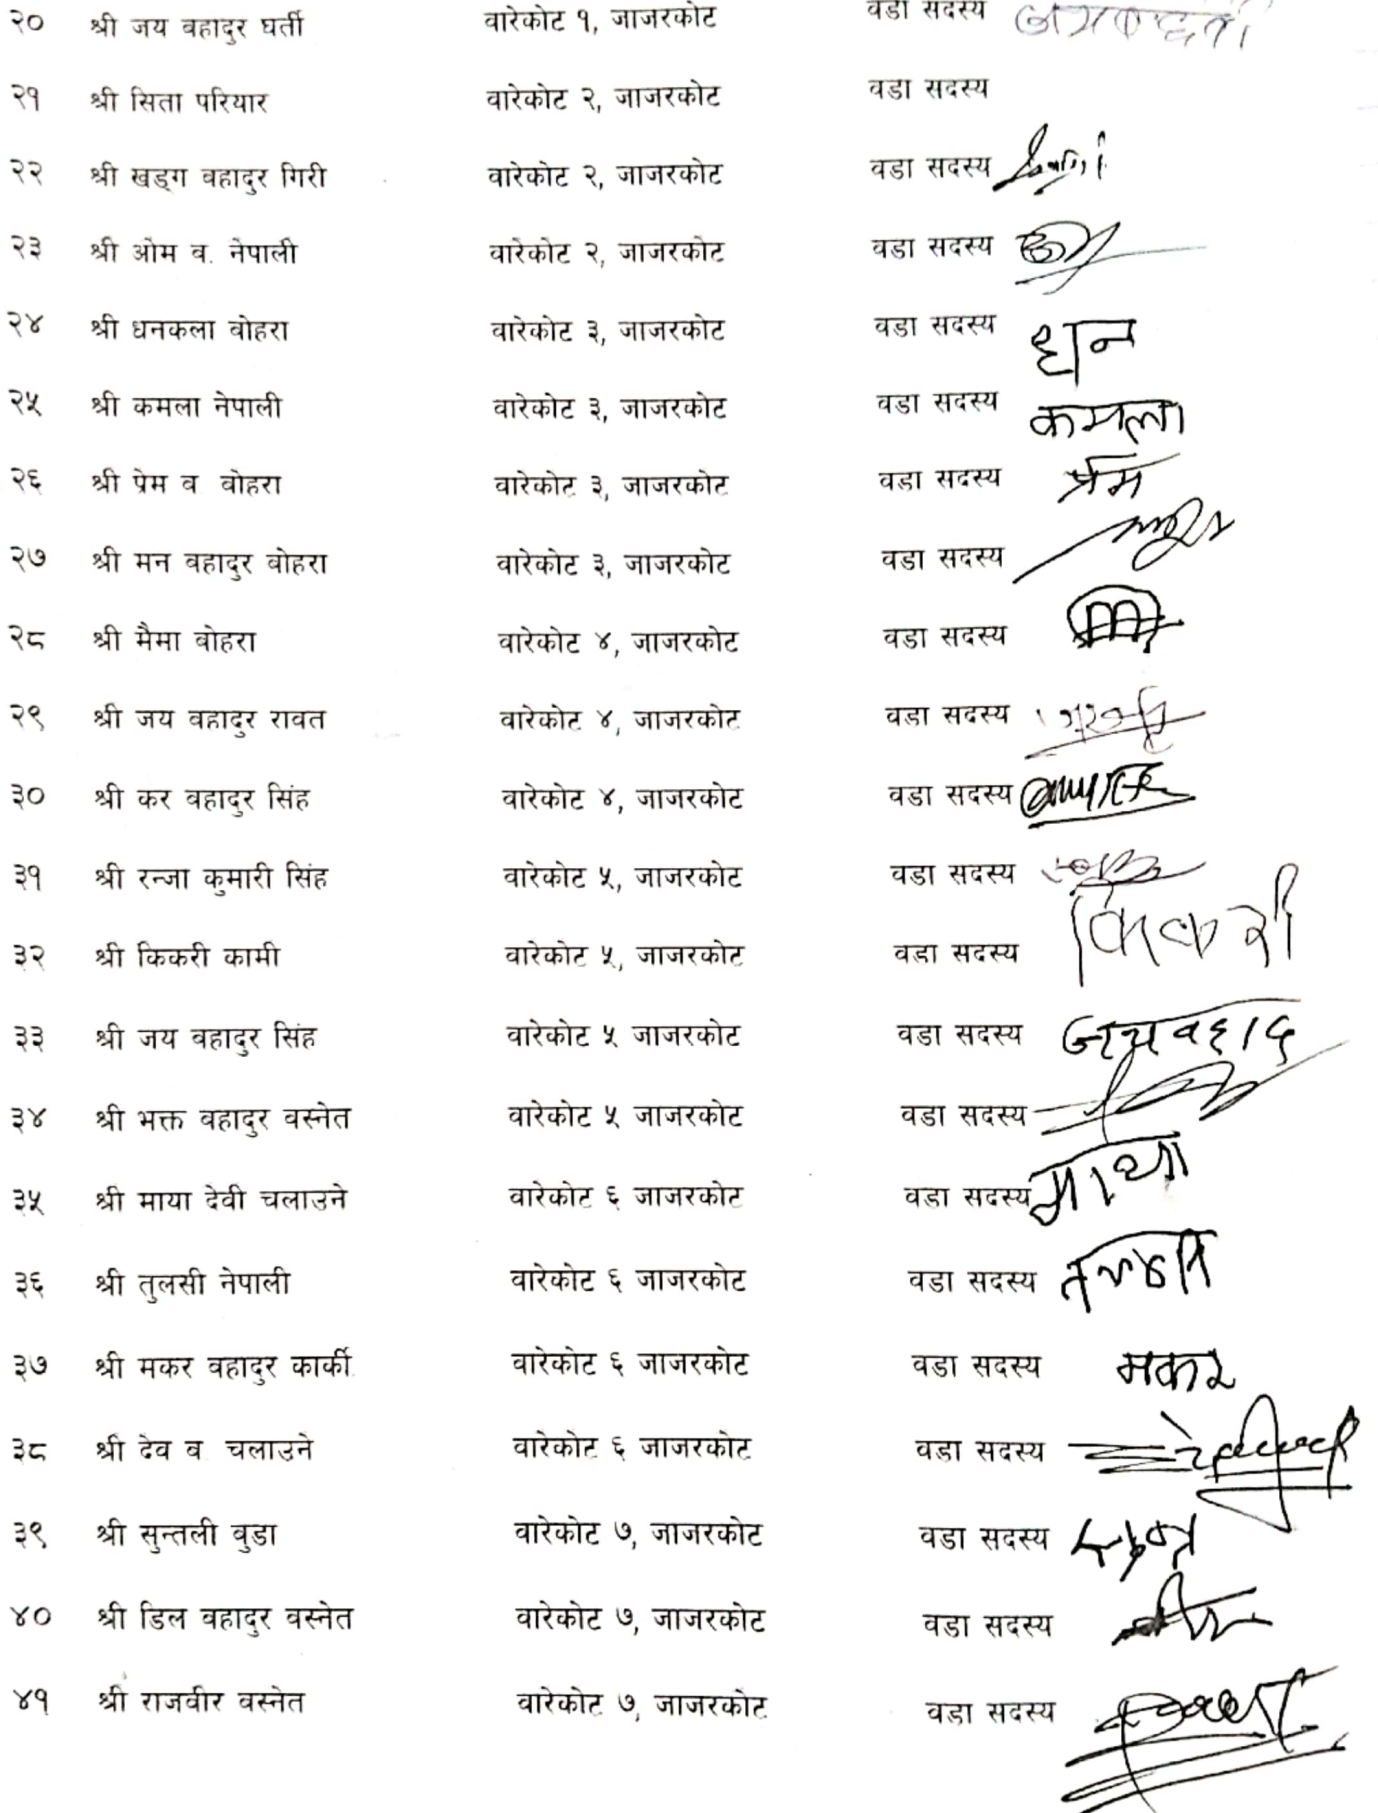 २० श्री जय बहादुर घर्ती वारेकोट १, जाजरकोट वडा सदस्य
२१ श्री सिता परियार वारेकोट २, जाजरकोट वडा सदस्य
२२ श्री खड्ग बहादुर गिरी वारेकोट २, जाजरकोट वडा सदस्य
२३ श्री ओम ब. नेपाली वारेकोट २, जाजरकोट वडा सदस्य
२४ श्री धनकला बोहरा वारेकोट ३, जाजरकोट वडा सदस्य धान
२५ श्री कमला नेपाली वारेकोट ३, जाजरकोट वडा सदस्य कमला
२६ श्री प्रेम ब बोहरा वारेकोट ३, जाजरकोट वडा सदस्य प्रेम
२७ श्री मन बहादुर बोहरा वारेकोट ३, जाजरकोट वडा सदस्य
२८ श्री मैमा बोहरा वारेकोट ४, जाजरकोट वडा सदस्य
२९ श्री जय बहादुर रावत वारेकोट ४, जाजरकोट वडा सदस्य
३० श्री कर बहादुर सिंह वारेकोट ४, जाजरकोट वडा सदस्य
३१ श्री रन्जा कुमारी सिंह वारेकोट ५, जाजरकोट वडा सदस्य
३२ श्री किकरी कामी वारेकोट ५, जाजरकोट वडा सदस्य किकरी
३३ श्री जय बहादुर सिंह वारेकोट ५ जाजरकोट वडा सदस्य
३४ श्री भक्त बहादुर वस्नेत वारेकोट ५ जाजरकोट वडा सदस्य
३५ श्री माया देवी चलाउने वारेकोट ६ जाजरकोट वडा सदस्य माया
३६ श्री तुलसी नेपाली वारेकोट ६ जाजरकोट वडा सदस्य
३७ श्री मकर बहादुर कार्की वारेकोट ६ जाजरकोट वडा सदस्य मकर
३८ श्री देव ब चलाउने वारेकोट ६ जाजरकोट वडा सदस्य
३९ श्री सुन्तली बुडा वारेकोट ७, जाजरकोट वडा सदस्य
४० श्री डिल बहादुर वस्नेत वारेकोट ७, जाजरकोट वडा सदस्य
४१ श्री राजवीर वस्नेत वारेकोट ७, जाजरकोट वडा सदस्य